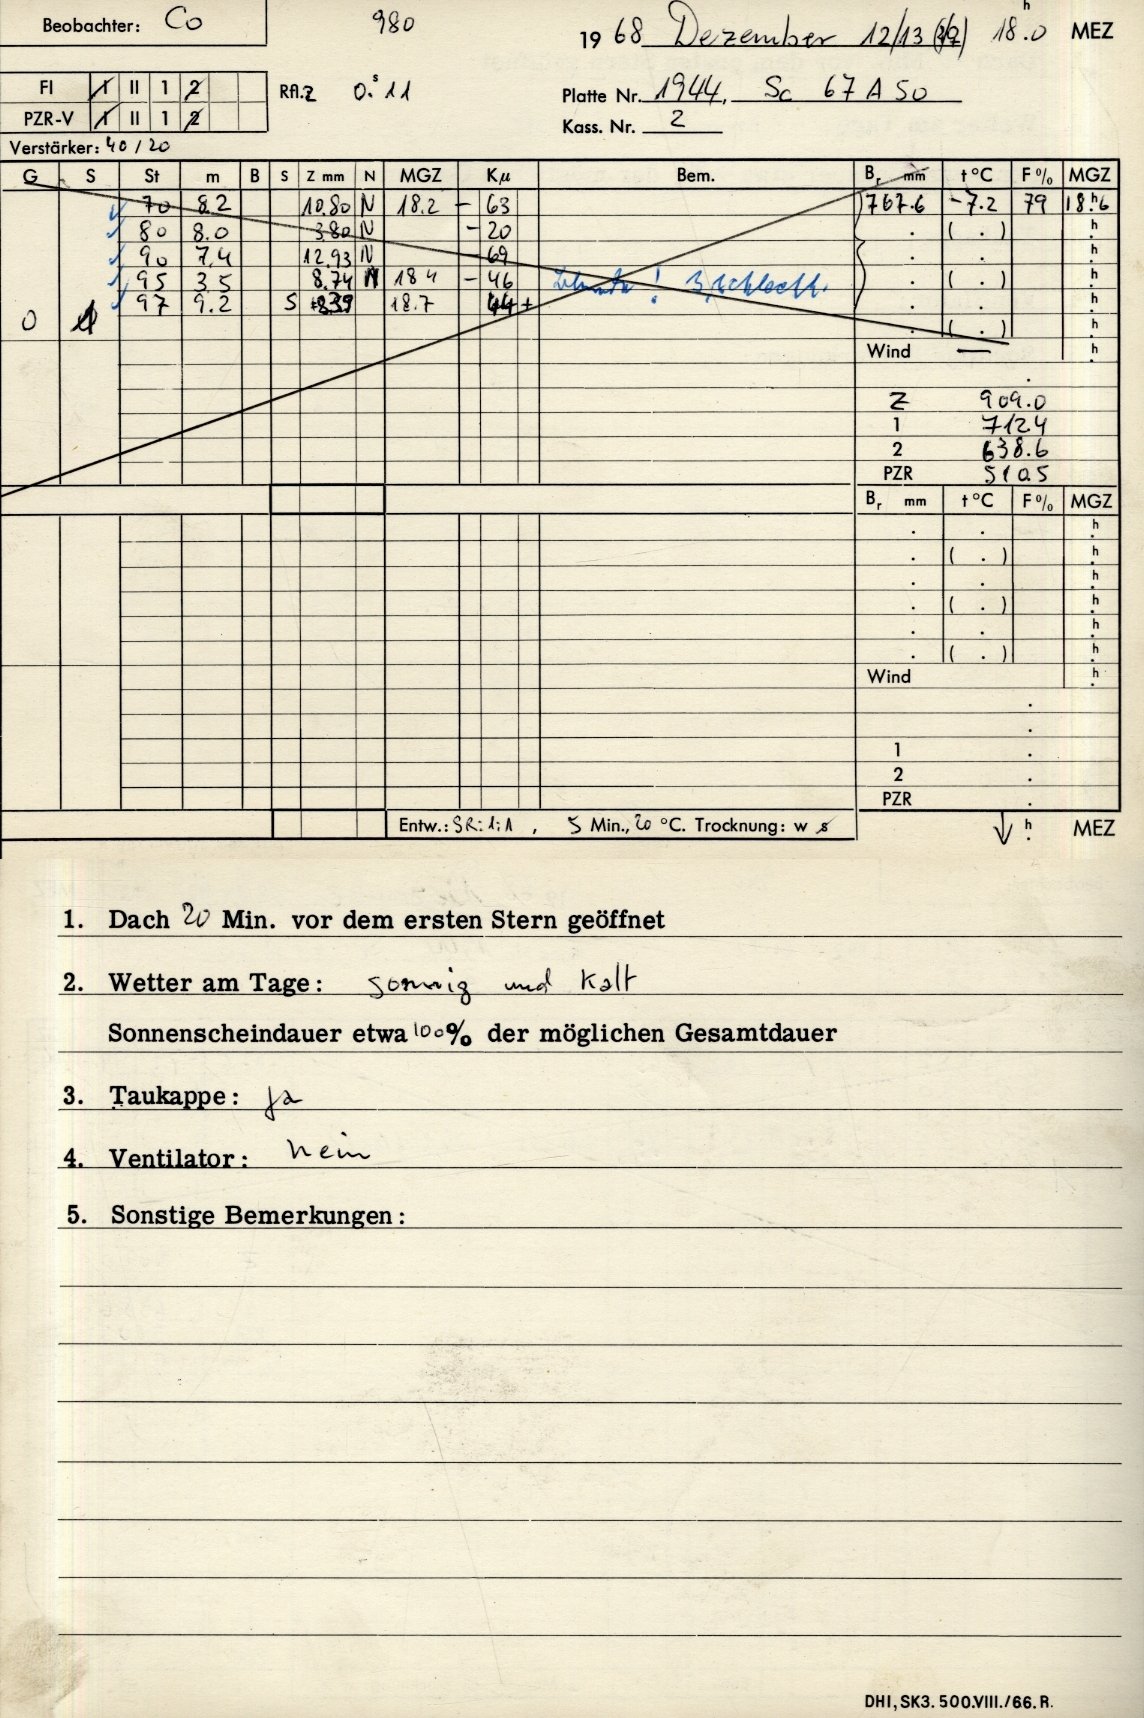 Beobachter: Co 980 1968 Dezember 12/13 18.0 h MEZ
FI I II 1 2 Rfl.z 0.s11 Platte Nr. 1944, Sc 67 A 50
PZR-V I II 1 2 Kass. Nr. 2
Verstärker: 40 / 20
G S St m B S Z mm N MGZ Kµ Bem. Br mm t °C F % MGZ
70 8.2 10.80 N 18.2 - 63 767.6 -7.2 79 18.h6
80 8.0 3.80 N - 20 . ( . ) h
90 7.4 12.93 N - 69 . . h
95 3.5 8.74 N 18 4 - 46 . ( . ) h
97 9.2 S 18.7 44 + . . h
0 . ( . ) h
Wind — h
.
Z 909.0
1 712.4
2 638.6
PZR 510.5
Br mm t °C F % MGZ
. . h
. ( . ) h
. . h
. ( . ) h
. . h
. ( . ) h
Wind h
.
.
1 .
2 .
PZR .
Entw.: SR:1:A , 5 Min., 20 °C. Trocknung: w s h MEZ
1. Dach 20 Min. vor dem ersten Stern geöffnet
2. Wetter am Tage: sonnig und kalt
Sonnenscheindauer etwa 100% der möglichen Gesamtdauer
3. Taukappe: ja
4. Ventilator: nein
5. Sonstige Bemerkungen:
DHI, SK3. 500.VIII./66. R.